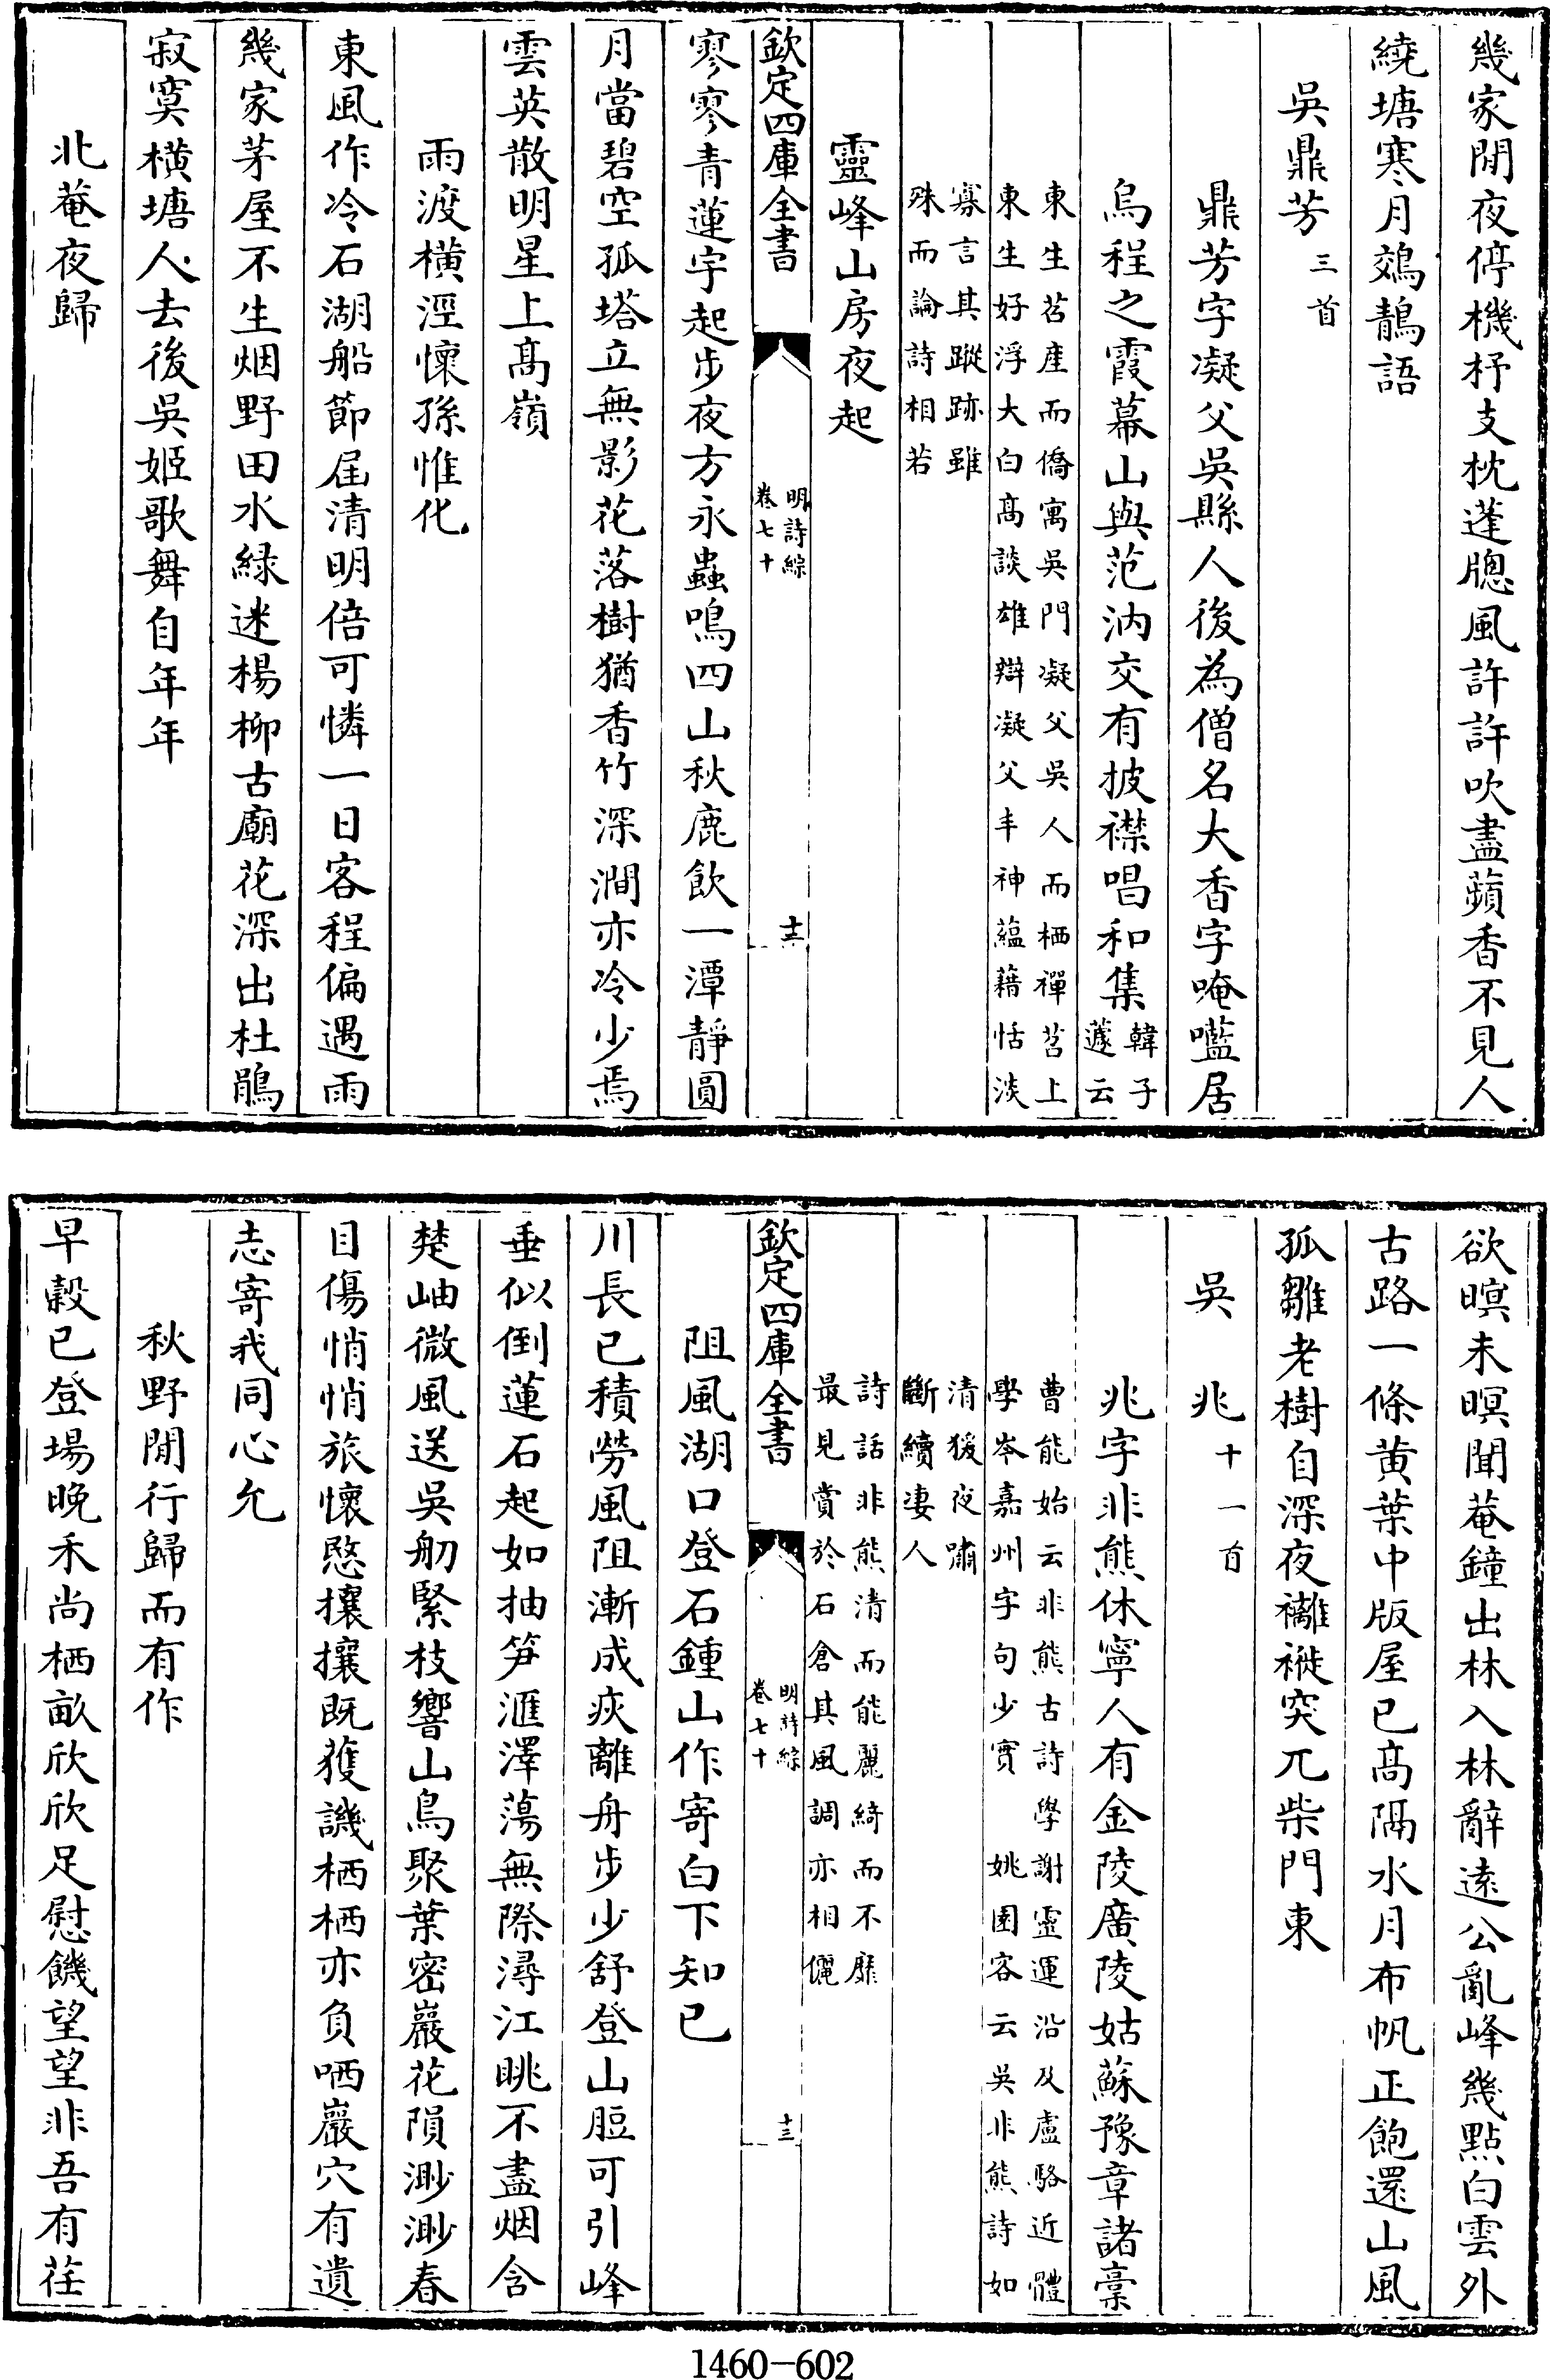 幾家閒夜停機杼支枕蓬牕風許許吹盡蘋香不見人
繞塘寒月鵁鶄語
吳鼎芳三首
鼎芳字凝父吳縣人後為僧名大香字唵囕居
烏程之霞幕山與范汭交有披襟唱和集韓子蘧云
東生苕産而僑寓吳門凝父吳人而栖禪苕上
東生好浮大白高談雄辯凝父丰神藴藉恬淡
寡言其蹤跡雖
殊而論詩相若
靈峰山房夜起
欽定四庫全書
明詩綜
卷七十
十二
寥寥青蓮宇起步夜方永蟲鳴四山秋鹿飲一潭靜圓
月當碧空孤塔立無影花落樹猶香竹深澗亦冷少焉
雲英散明星上髙嶺
雨渡橫涇懷孫惟化
東風作冷石湖船節屆清明倍可憐一日客程偏遇雨
幾家茅屋不生烟野田水緑迷楊柳古廟花深出杜鵑
寂寞橫塘人去後吳姬歌舞自年年
北菴夜歸
欲暝未暝聞菴鐘出林入林辭逺公亂峰幾點白雲外
古路一條黄葉中版屋已髙隔水月布帆正飽還山風
孤雛老樹自深夜褵褷突兀柴門東
吳兆十一首
兆字非熊休寧人有金陵廣陵姑蘇豫章諸稾
曹能始云非熊古詩學謝靈運沿及盧駱近體
學岑嘉州字句少實 姚園客云吳非熊詩如
清猨夜嘯
斷續凄人
詩話非熊清而能麗綺而不靡
最見賞於石倉其風調亦相儷
欽定四庫全書
明詩綜
卷七十
十三
阻風湖口登石鍾山作寄白下知已
川長已積勞風阻漸成疢離舟步少舒登山脰可引峰
垂似倒蓮石起如抽笋滙澤蕩無際潯江眺不盡烟含
楚岫微風送吳舠緊枝響山鳥聚葉密巖花隕渺渺春
目傷悄悄旅懷愍攘攘既獲譏栖栖亦負哂巖穴有遺
志寄我同心允
秋野閒行歸而有作
早穀已登場晚禾尚栖畝欣欣足慰饑望望非吾有荏
1460-602